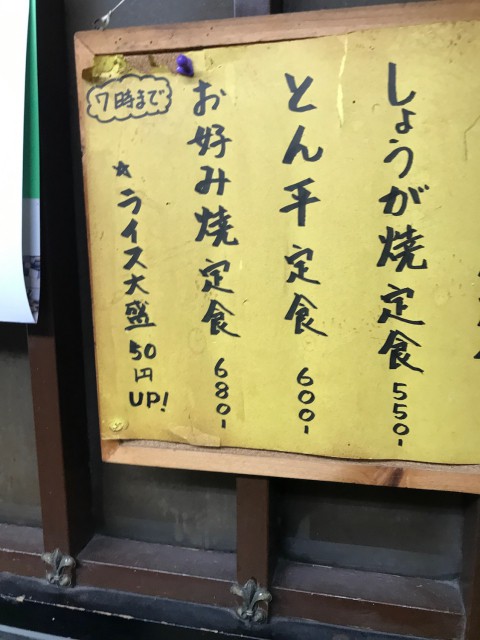 しょうが焼定食 550-
とん平定食 600-
お好み焼定食 680-
7時まで
★ライス大盛50円UP!